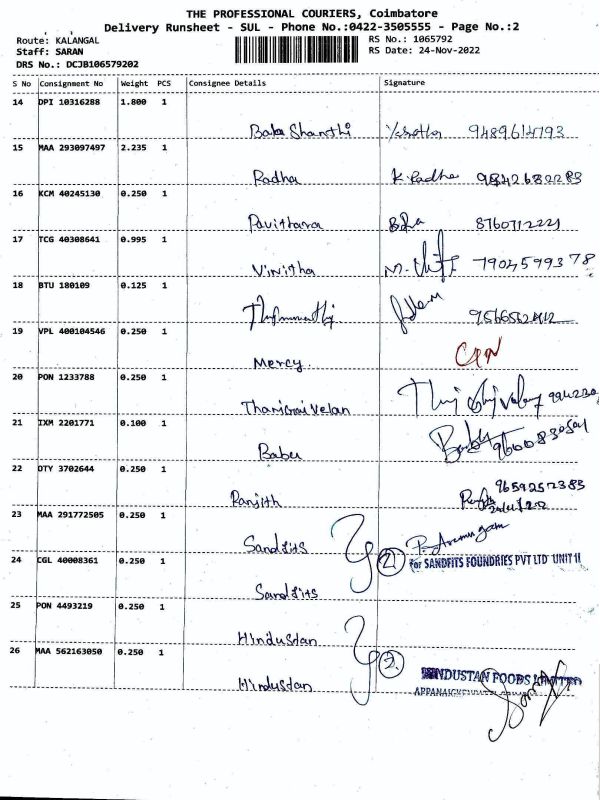 THE PROFESSIONAL COURIERS, Coimbatore
Delivery Runsheet - SUL - Phone No.:0422-3505555 - Page No.:2
Route: KALANGAL
RS No.: 1065792
Staff: SARAN
RS Date: 24-Nov-2022
DRS No.: DCJB106579202
S No Consignment No Weight PCS Consignee Details Signature
14 DPI 10316288 1.800 1
Baba Shanthi
15 MAA 293097497 2.235 1
Radha K. Radha
16 KCM 40245130 0.250 1
Pavithara
17 TCG 40308641 0.995 1
Vinitha 7904599378
18 BTU 180109 0.125 1
19 VPL 400104546 0.250 1
Mercy.
20 PON 1233788 0.250 1
Thangaivelan
21 IXM 2201771 0.100 1
Babu
22 OTY 3702644 0.250 1
Ranjith 9659257385
23 MAA 291772505 0.250 1
Sandfits P. Arumugam
24 CGL 40008361 0.250 1
2. For SANDFITS FOUNDRIES PVT LTD UNIT II
Sandfits
25 PON 4493219 0.250 1
Hindustan
26 MAA 562163050 0.250 1
2. HINDUSTAN FOODS LIMITED
Hindustan